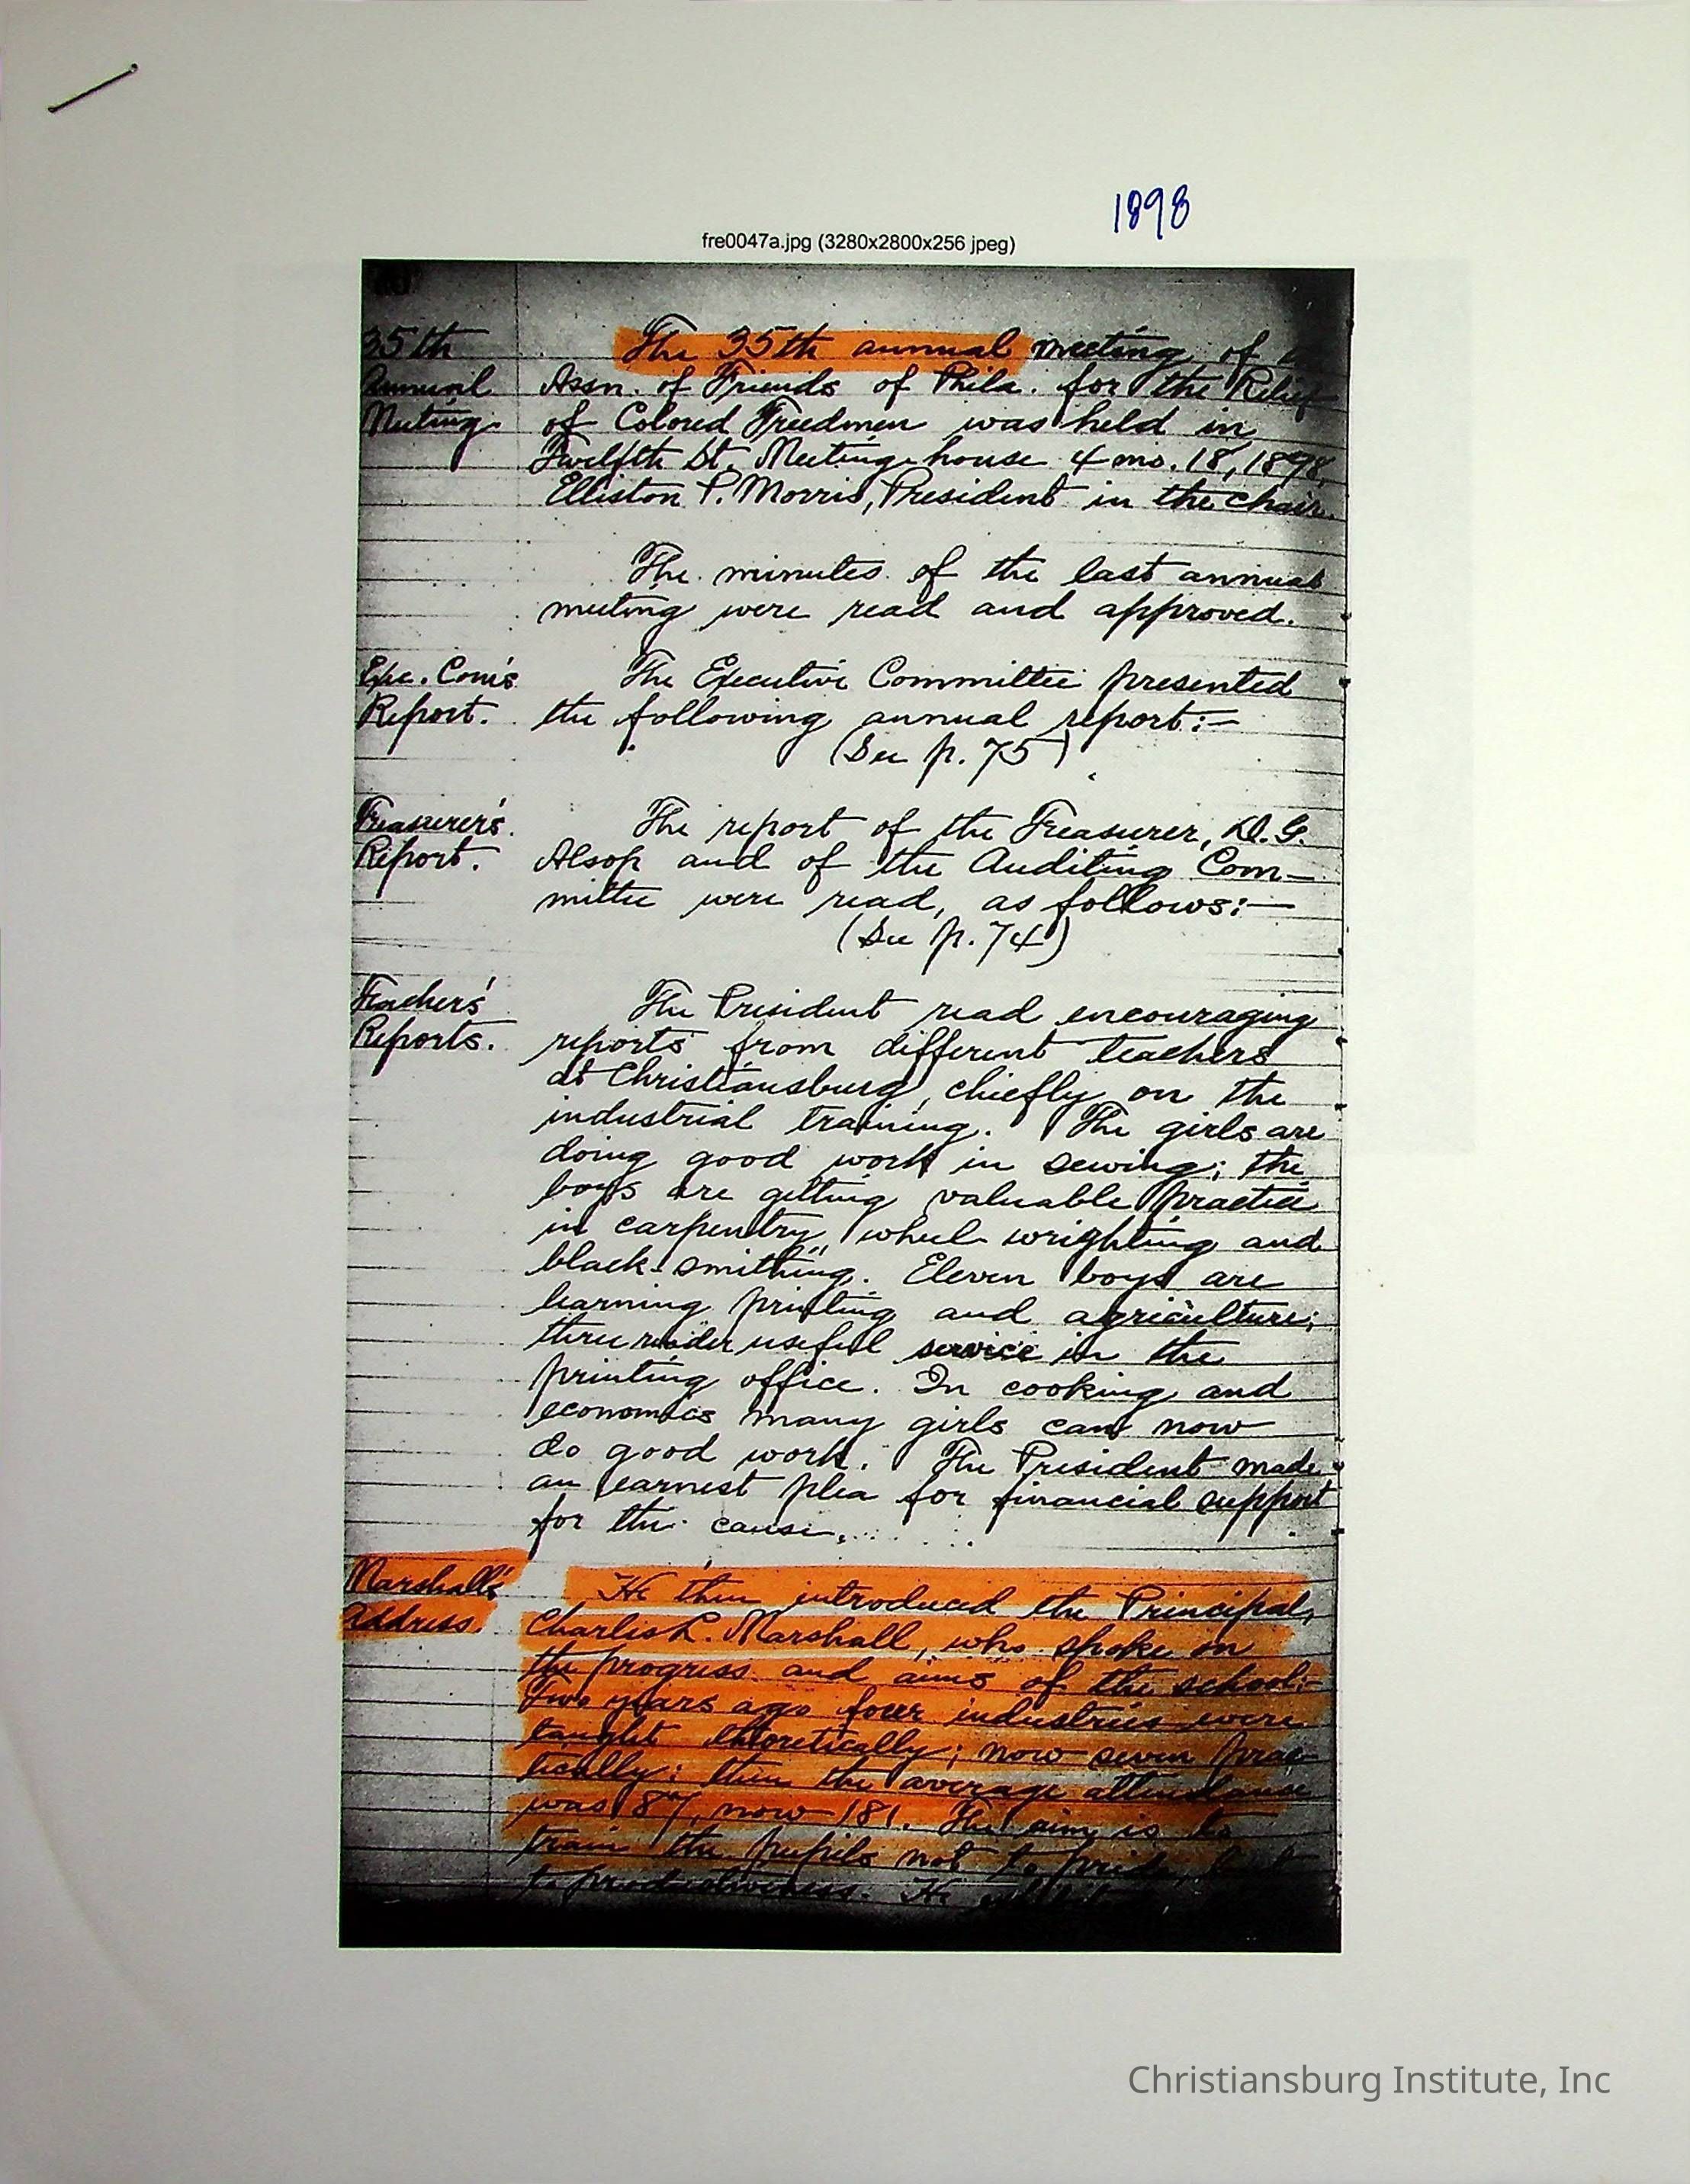 1898
fre0047a.jpg (3280x2800x256 jpeg)
35th
Annual
Meeting.
The 35th annual meeting of
Assn. of Friends of Phila. for the Relief
of Colored Freedmen was held in
Twelfth St. Meeting-house 4 mo. 18, 1898,
Elliston P. Morris, President in the chair.
The minutes of the last annual
meeting were read and approved.
Exe. Com's
Report.
The Executive Committee presented
the following annual report:—
(See p. 75)
Treasurer's
Report.
The report of the Treasurer, D. G.
Alsop and of the Auditing Com-
mittee were read, as follows:—
(See p. 74)
Teachers'
Reports.
The President read encouraging
reports from different teachers
at Christiansburg, chiefly on the
industrial training. The girls are
doing good work in sewing; the
boys are getting valuable practice
in carpentry, wheel-wrighting and
black-smithing. Eleven boys are
learning printing and agriculture;
three render useful service in the
printing office. In cooking and
economics many girls can now
do good work. The President made
an earnest plea for financial support
for the cause.
Marshall's
address
He then introduced the Principal,
Charles L. Marshall, who spoke on
the progress and aims of the school:-
Two years ago four industries were
taught theoretically; now seven prac-
tically; then the average attendance
was 87, now 181. The aim is to
train the pupils not to pride, but
to productiveness. He
Christiansburg Institute, Inc